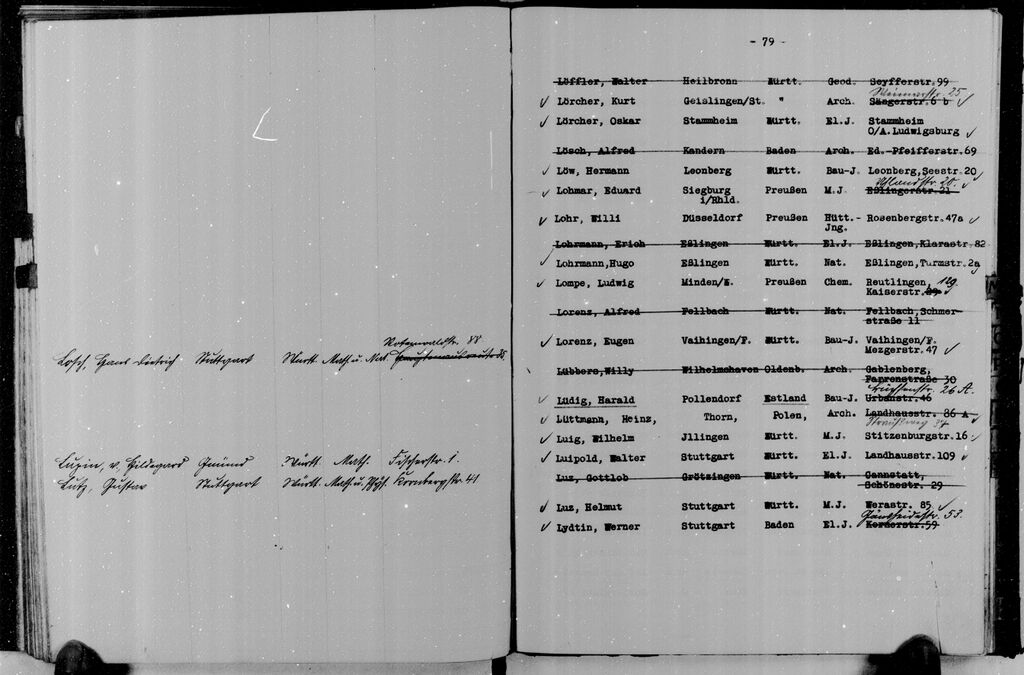 Rotenwaldstr. 88
Losch, Hans Dietrich Stuttgart Württ. Math. u. Nat.
Lupin, v. Hildegard Gmünd Württ. Math. Fischerstr. 1.
Lutz, Gustav Stuttgart Württ. Math. u. Phys. Kornbergstr. 41
- 79 -
Löffler, Walter Heilbronn Württ. Geod. Seyfferstr. 99
Weimarstr. 25
Lörcher, Kurt Geislingen/St. " Arch. Sängerstr. 6 b
Lörcher, Oskar Stammheim Württ. El.J. Stammheim
O/A. Ludwigsburg
Lösch, Alfred Kandern Baden Arch. Ed.-Pfeifferstr. 69
Löw, Hermann Leonberg Württ. Bau-J. Leonberg, Seestr. 20
Uhlandstr. 20.
Lohmar, Eduard Siegburg Preußen M.J. Eßlingerstr. 21
i/Rhld.
Lohr, Willi Düsseldorf Preußen Hütt.- Rosenbergstr. 47a
Jng.
Lohrmann, Erich Eßlingen Württ. El.J. Eßlingen, Klarastr. 82
Lohrmann,Hugo Eßlingen Württ. Nat. Eßlingen, Turmstr. 2a
Lompe, Ludwig Minden/W. Preußen Chem. Reutlingen, 129
Kaiserstr.
Lorenz, Alfred Fellbach Württ. Nat. Fellbach, Schmer-
straße 11
Lorenz, Eugen Vaihingen/F. Württ. Bau-J. Vaihingen/F.
Mezgerstr. 47
Lübbers,Willy Wilhelmshaven Oldenb. Arch. Gablenberg,
Farrenstraße 30
26 A.
Lüdig, Harald Pollendorf Estland Bau-J. Urbanstr. 46
Lüttmann, Heinz, Thorn, Polen, Arch. Landhausstr. 86 A
Straußweg 34
Luig, Wilhelm Jllingen Württ. M.J. Stitzenburgstr. 16
Luipold, Walter Stuttgart Württ. El.J. Landhausstr. 109
Luz, Gottlob Grötzingen Württ. Nat. Cannstatt,
Schönestr. 29
Luz, Helmut Stuttgart Württ. M.J. Werastr. 85
Gänsheidestr. 53.
Lydtin, Werner Stuttgart Baden El.J. Kernerstr. 59